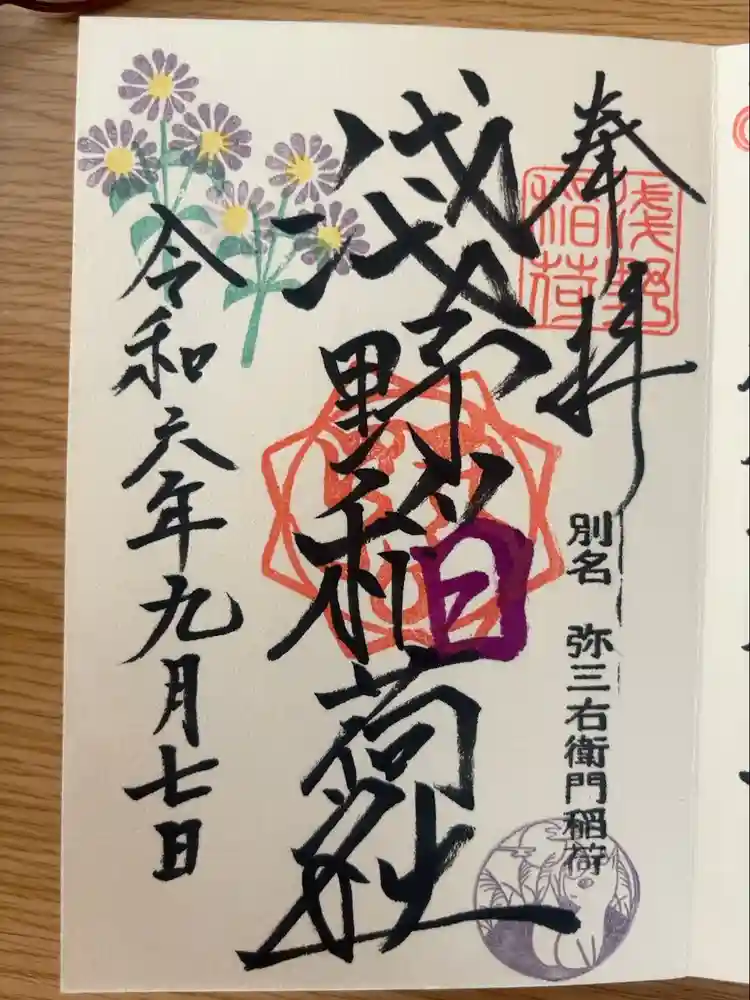 奉拝
浅野稲荷
別名 弥三右衛門稲荷
浅野稲荷社
令和六年九月七日